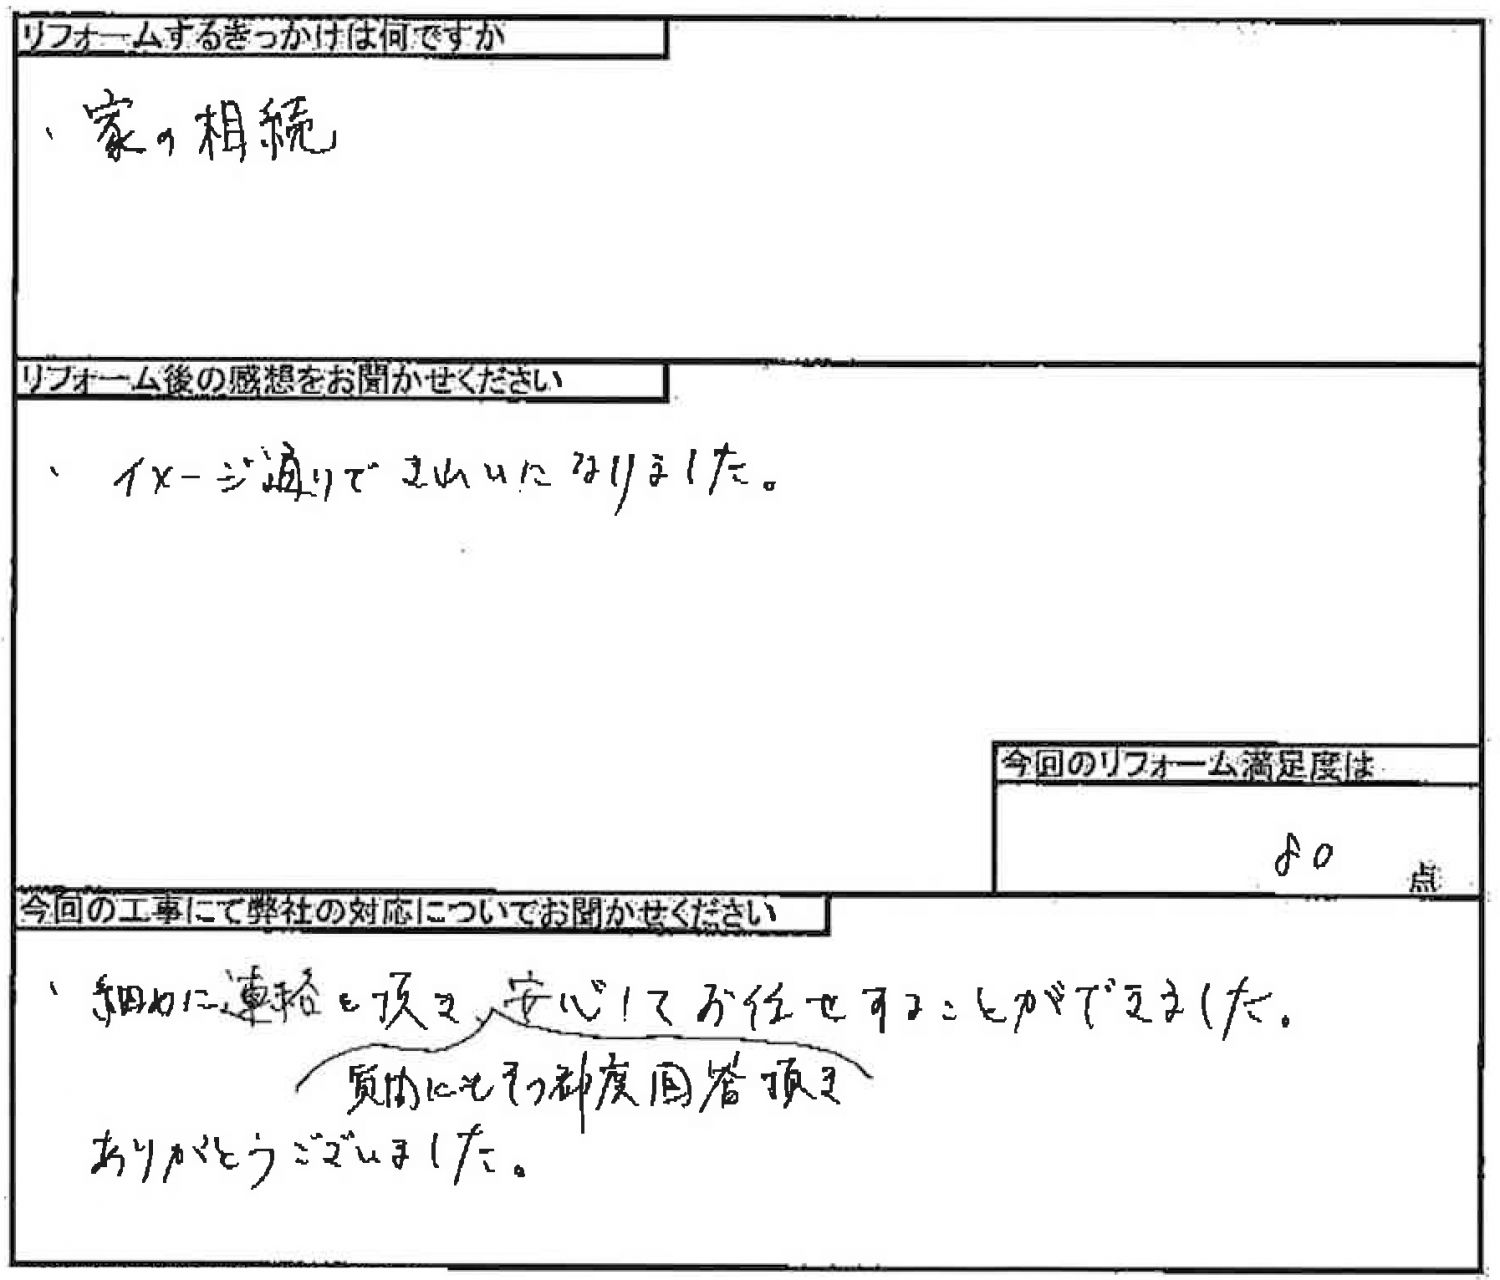 リフォームするきっかけは何ですか
・家の相続
リフォーム後の感想をお聞かせください
・イメージ通りできれいになりました。
今回のリフォーム満足度は
80 点
今回の工事にて弊社の対応についてお聞かせください
・細めに連絡を頂き、安心してお任せすることができました。
質問にもその都度回答頂き
ありがとうございました。